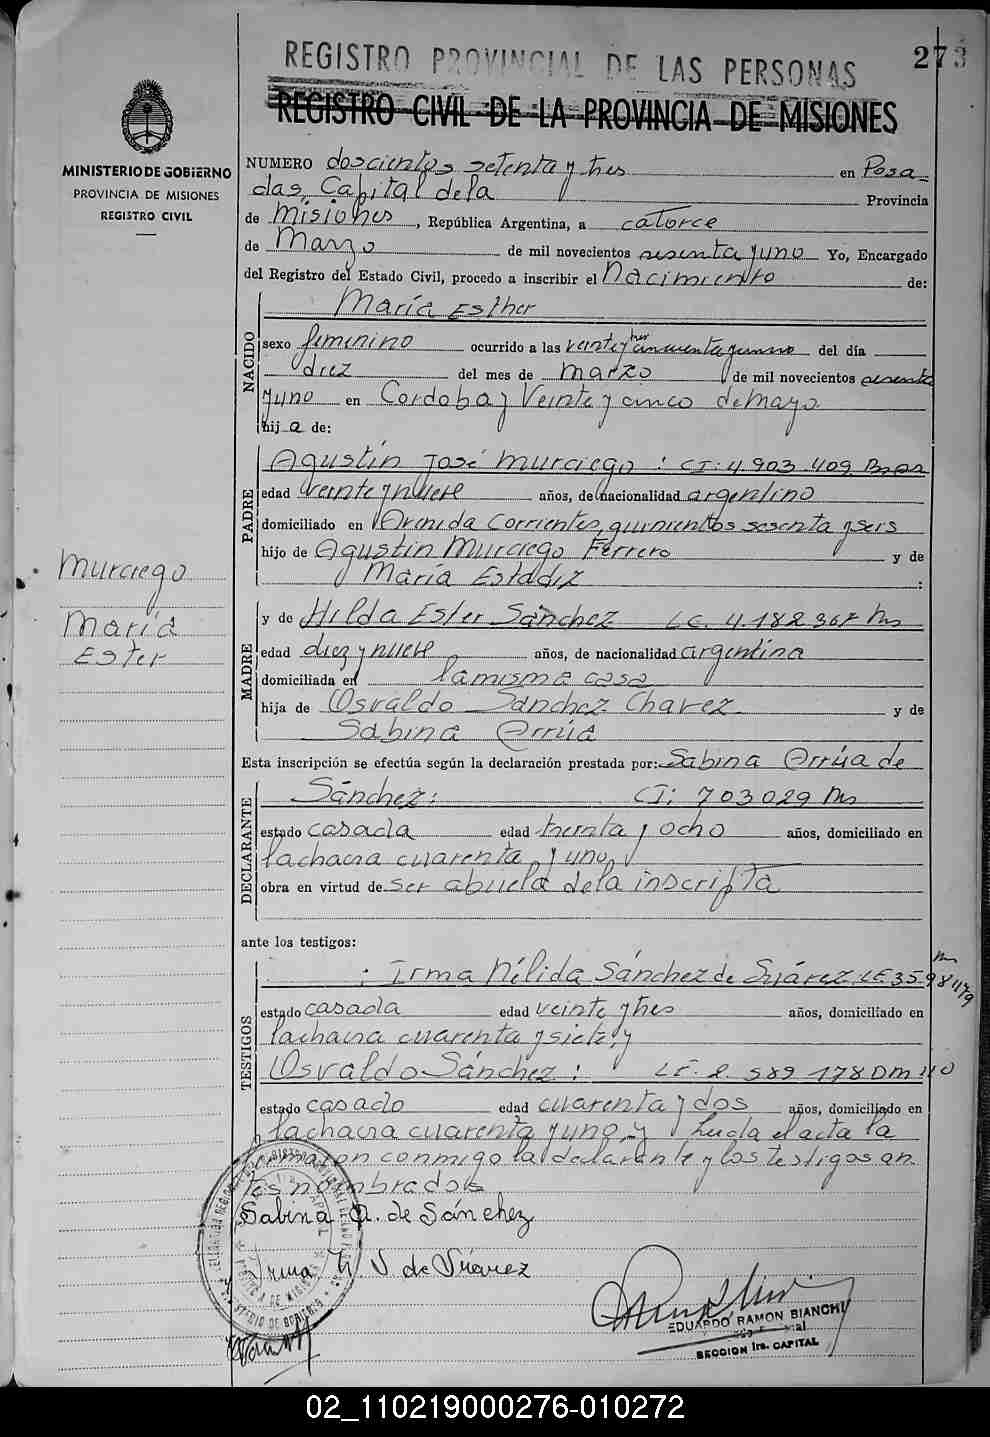 REGISTRO PROVINCIAL DE LAS PERSONAS
273
REGISTRO CIVIL DE LA PROVINCIA DE MISIONES
MINISTERIO DE GOBIERNO
PROVINCIA DE MISIONES
REGISTRO CIVIL
NUMERO doscientos setenta y tres en Posa-
das, Capital de la Provincia
de Misiones, República Argentina, a catorce
de Marzo de mil novecientos sesenta y uno Yo, Encargado
del Registro del Estado Civil, procedo a inscribir el Nacimiento de:
NACIDO
María Esther
sexo femenino ocurrido a las veinte y tres cincuenta y uno del día
diez del mes de marzo de mil novecientos sesenta
y uno en Cordoba y Veinte y cinco de Mayo
hij a de:
PADRE
Agustín José Murciego : CI: 4.903.409
edad veinte y nueve años, de nacionalidad argentino
domiciliado en Avenida Corrientes, quinientos sesenta y seis
hijo de Agustín Murciego Ferrero y de
María Estadiz :
Murciego
María
Ester
MADRE
y de Hilda Ester Sánchez LC. 4.182.367 Ms
edad diez y nueve años, de nacionalidad argentina
domiciliada en la misma casa
hija de Osvaldo Sánchez Chavez y de
Sabina Orrúa
Esta inscripción se efectúa según la declaración prestada por: Sabina Orrúa de
DECLARANTE
Sánchez: CI: 703029 Ms
estado casada edad treinta y ocho años, domiciliado en
la chacra cuarenta y uno
obra en virtud de ser abuela de la inscripta
ante los testigos:
TESTIGOS
: Irma Nélida Sánchez de Suárez LE.
estado casada edad veinte y tres años, domiciliado en
la chacra cuarenta y siete y
Osvaldo Sánchez: LE. 2.589.178 DM 40
estado casado edad cuarenta y dos años, domiciliado en
la chacra cuarenta y uno y Leída el acta la
firmaron conmigo la declarante y los testigos an-
tes nombrados
Sabina O. de Sánchez
Irma N. S. de Suárez
EDUARDO RAMON BIANCHI
SECCION 1ra. CAPITAL
02_110219000276-010272